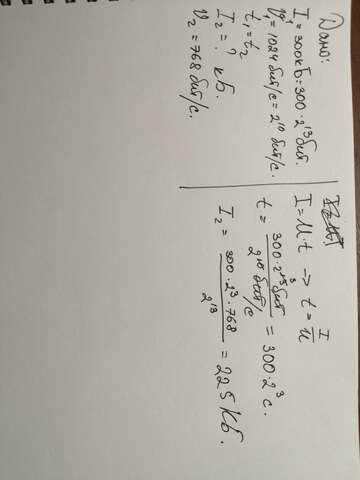 Дано:
I₁ = 300кб = 300 · 2¹³ бит.
V₁ = 1024 бит/с = 2¹⁰ бит/с.
t₁ = t₂
I₂ = ? кб.
V₂ = 768 бит/с.
I = U · t → t = I/U
t = 300 · 2¹³ бит / 2¹⁰ бит/с = 300 · 2³ с.
I₂ = 300 · 2³ · 768 / 2¹³ = 225 Кб.